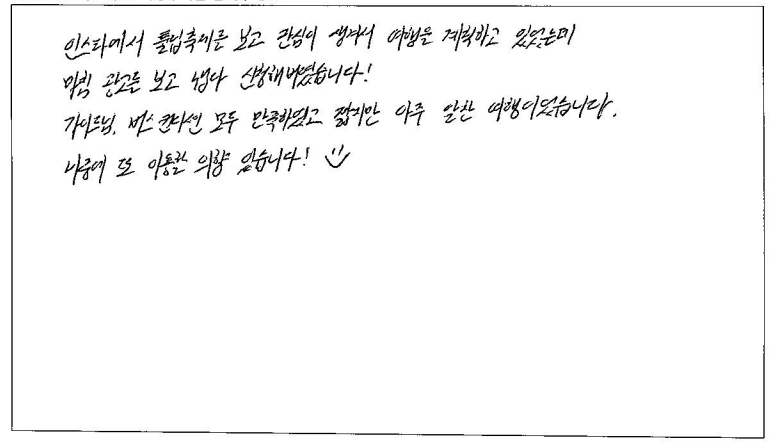 인스타에서 튤립축제를 보고 관심이 생겨서 여행을 계획하고 있었는데
광고를 보고 냅다 신청해버렸습니다!
가이드님, 버스 컨디션 모두 만족하였고 짧지만 아주 알찬 여행이었습니다.
나중에 또 이용할 의향 있습니다!